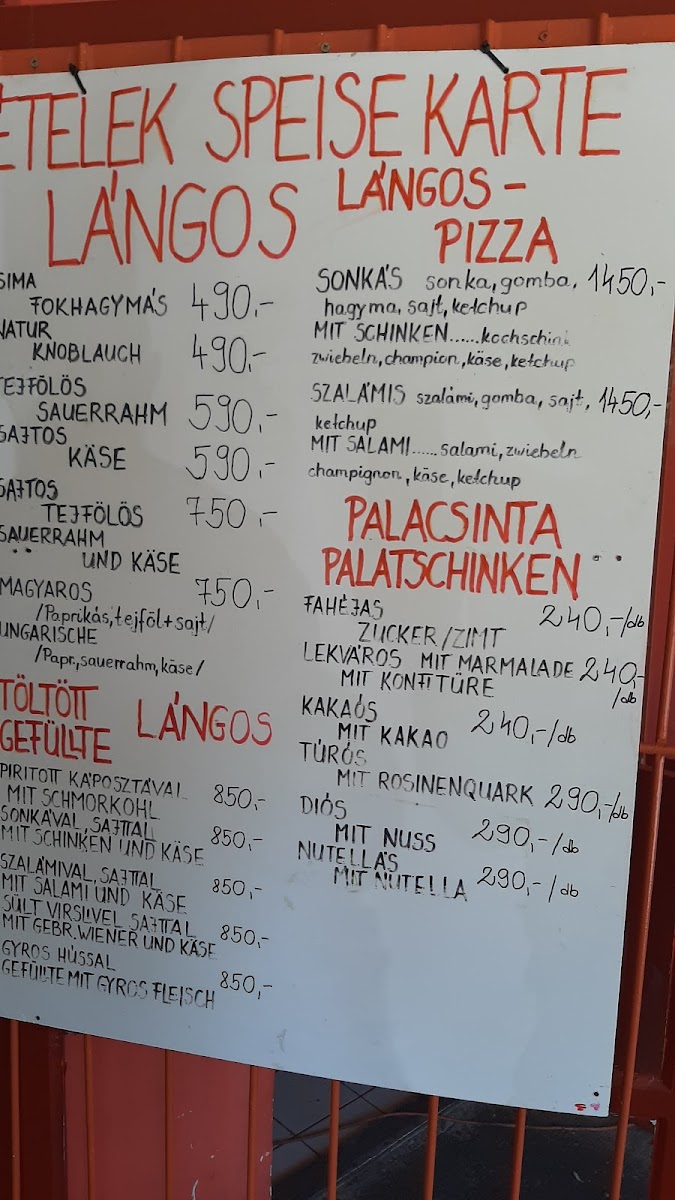 ÉTELEK SPEISE KARTE
LÁNGOS
SIMA
FOKHAGYMÁS 490,-
NATUR
KNOBLAUCH 490,-
TEJFÖLÖS
SAUERRAHM 590,-
SAJTOS
KÄSE 590,-
SAJTOS
TEJFÖLÖS 750,-
SAUERRAHM
UND KÄSE
MAGYAROS 750,-
/Paprikás,tejföl+sajt/
UNGARISCHE
/Papr.,sauerrahm,käse/
TÖLTÖTT LÁNGOS
GEFÜLLTE
PIRITOTT KÁPOSZTÁVAL 850,-
MIT SCHMORKOHL
SONKÁVAL, SAJTTAL 850,-
MIT SCHINKEN UND KÄSE
SZALÁMIVAL, SAJTTAL 850,-
MIT SALAMI UND KÄSE
SÜLT VIRSLIVEL SAJTTAL 850,-
MIT GEBR. WIENER UND KÄSE
GYROS HÚSSAL 850,-
GEFÜLLTE MIT GYROS FLEISCH
LÁNGOS-
PIZZA
SONKÁS sonka, gomba, 1450,-
hagyma, sajt, ketchup
MIT SCHINKEN......kochschink
zwiebeln, champion, käse, ketchup
SZALÁMIS szalámi, gomba, sajt, 1450,-
ketchup
MIT SALAMI......salami, zwiebeln
champignon, käse, ketchup
PALACSINTA
PALATSCHINKEN
FAHÉJAS 240,-/db
ZUCKER/ZIMT
LEKVÁROS MIT MARMALADE 240,-
/db
MIT KONFITÜRE
KAKAÓS 240,-/db
MIT KAKAO
TÚRÓS
MIT ROSINENQUARK 290,-/db
DIÓS 290,-/db
MIT NUSS
NUTELLÁS 290,-/db
MIT NUTELLA